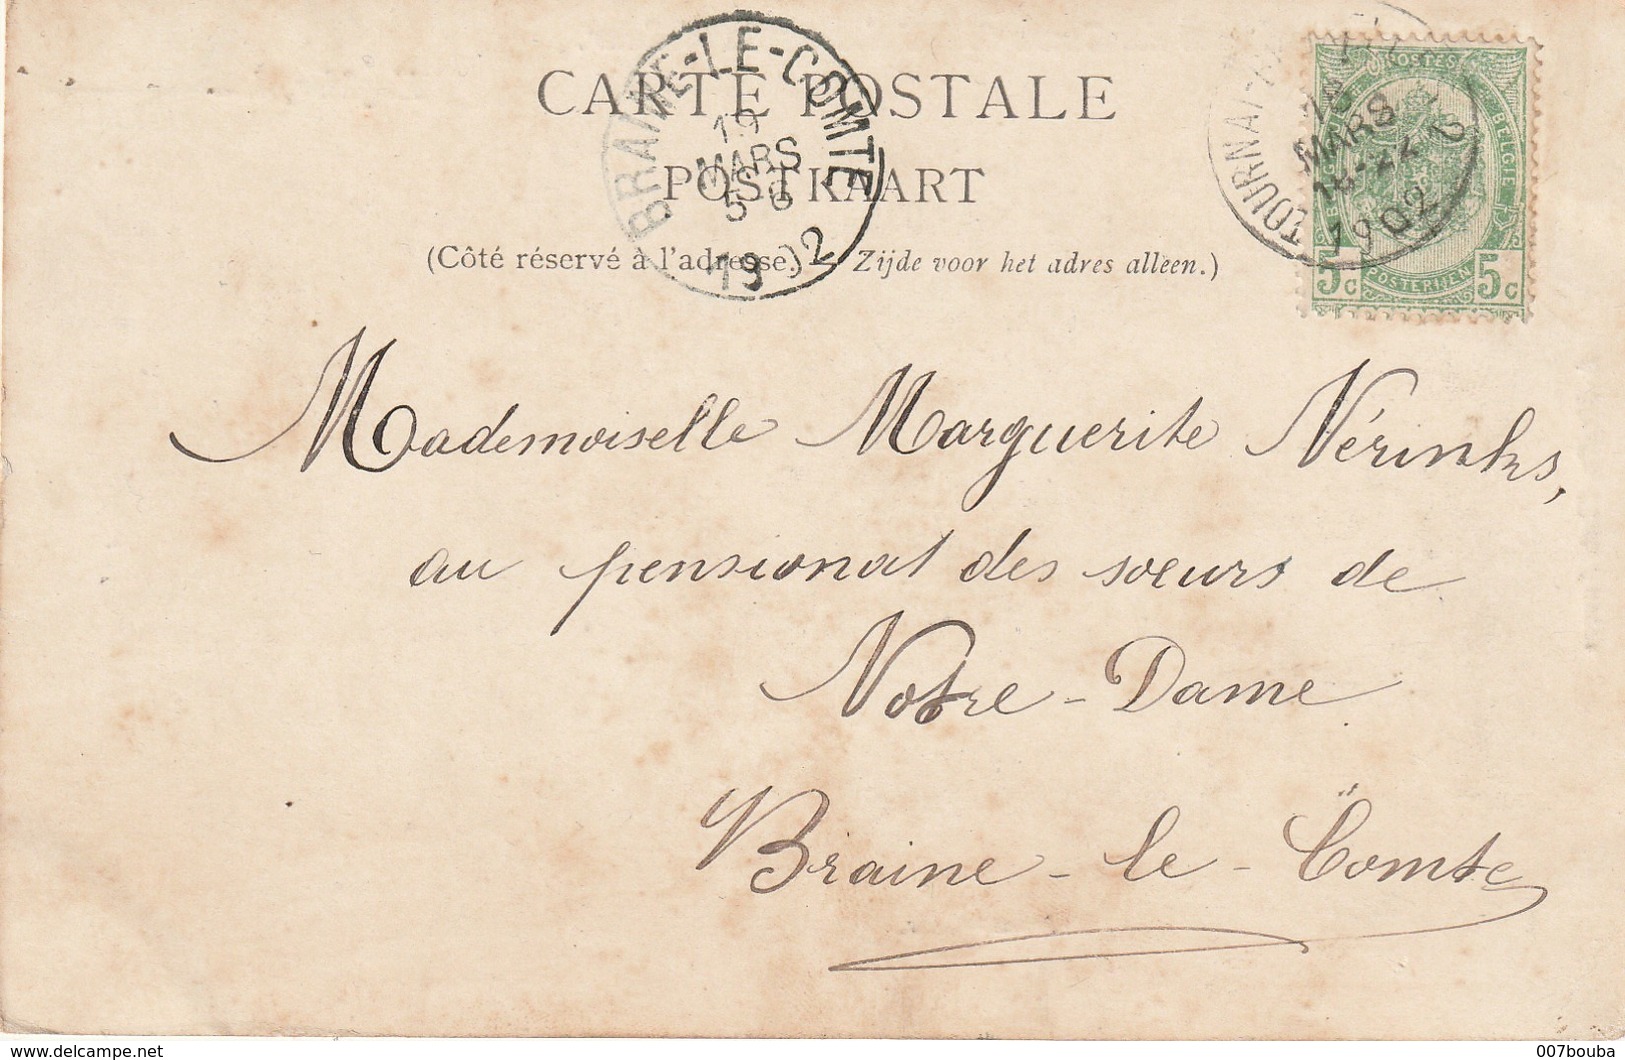 CARTE POSTALE
POSTKAART
(Côté réservé à l'adresse.) Zijde voor het adres alléén.)
BRAINE-LE-COMTE
19
MARS
5
1902
TOURNAI
MARS
1902
POSTES
BELGIE
5c POSTERIJEN 5c
Mademoiselle Marguerite Nérinks,
au pensionat des sœurs de
Notre-Dame
Braine-le-Comte
www.delcampe.net
007bouba